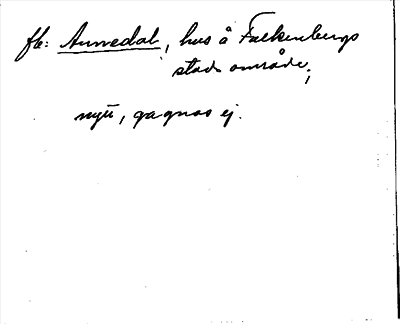 fb: Annedal, hus å Falkenbergs
stads område;
nytt, gagnas ej.